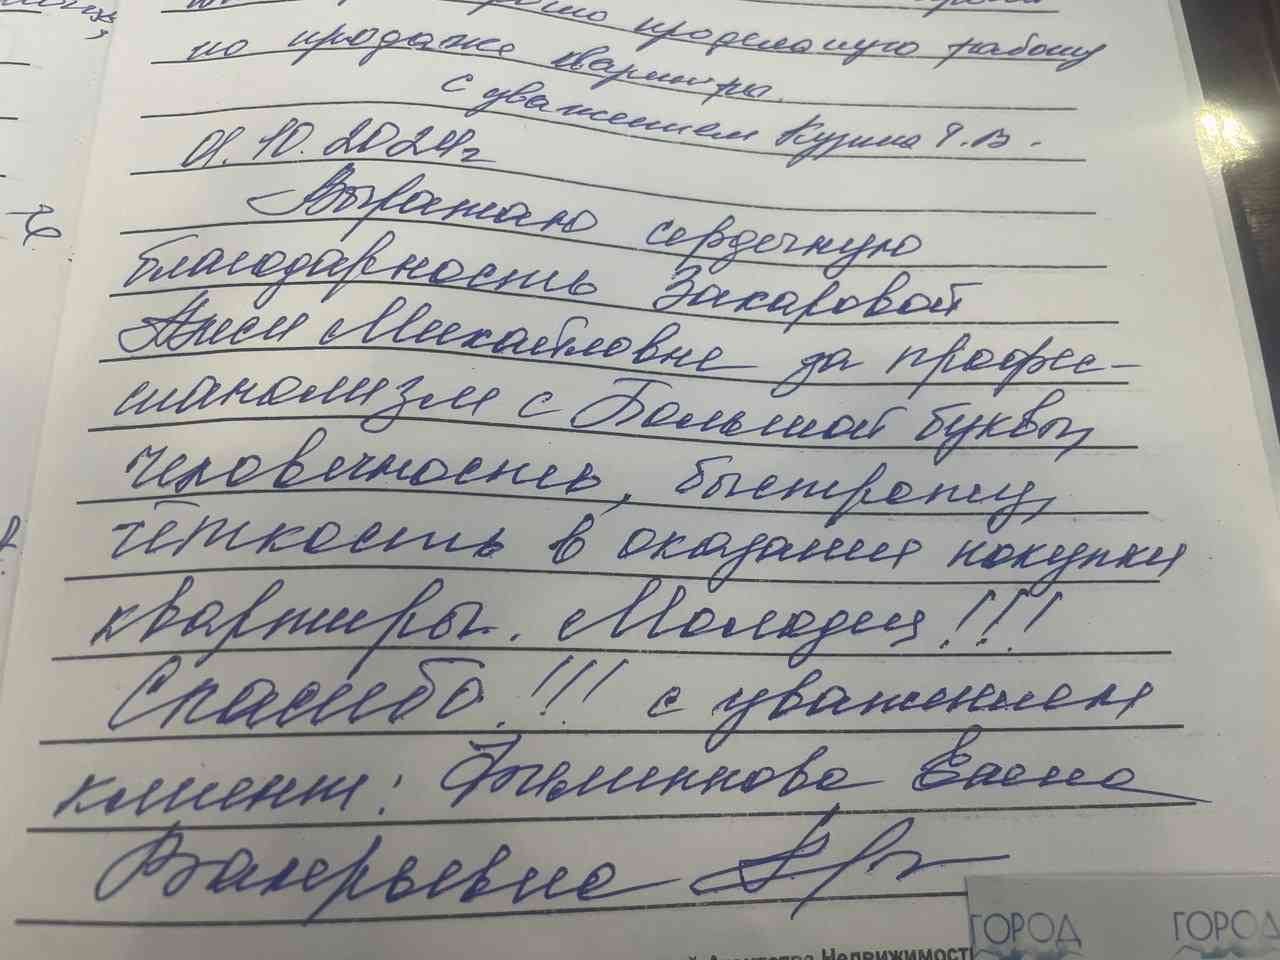 проделанную работу
по продаже квартиры.
С уважением Кузина Т.В.
01.10.2024г
Выражаю сердечную
благодарность Захаровой
Алисе Михайловне за профес-
сианализм с Большой буквы,
человечность, быстроту,
чёткость в оказании покупки
квартиры. Молодец!!!
Спасибо!!! с уважением
клиент: Елена
Валерьевна
ГОРОД ГОРОД
Агентства Недвижимост